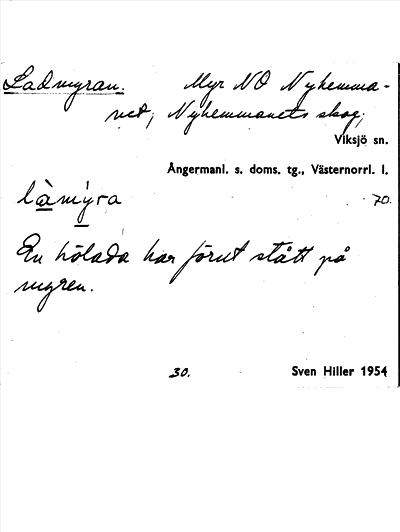 Ladmyran. Myr NO Nyhemma-
net, Nyhemmanets skog,
Viksjö sn.
Ångermanl. s. doms. tg., Västernorrl. l.
làmýra 70.
En hölada har förut stått på
myren.
30. Sven Hiller 1954